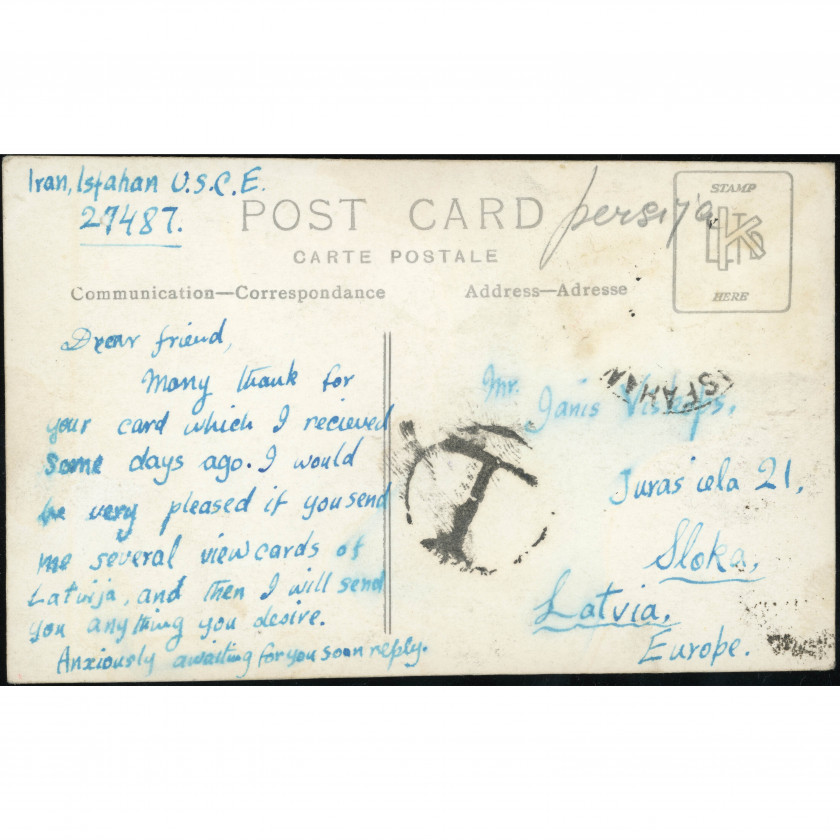 Iran, Isfahan U.S.C.E.
27487.
POST CARD
persija
CARTE POSTALE
STAMP
HERE
Communication—Correspondance
Address—Adresse
Drear friend,
Many thank for
your card which I recieved
some days ago. I would
be very pleased if you send
me several view cards of
Latvija, and then I will send
you any thing you desire.
Anxiously awaiting for you soon reply.
ISFAHAN
T
Mr. Janis
Juras iela 21,
Sloka,
Latvia,
Europe.